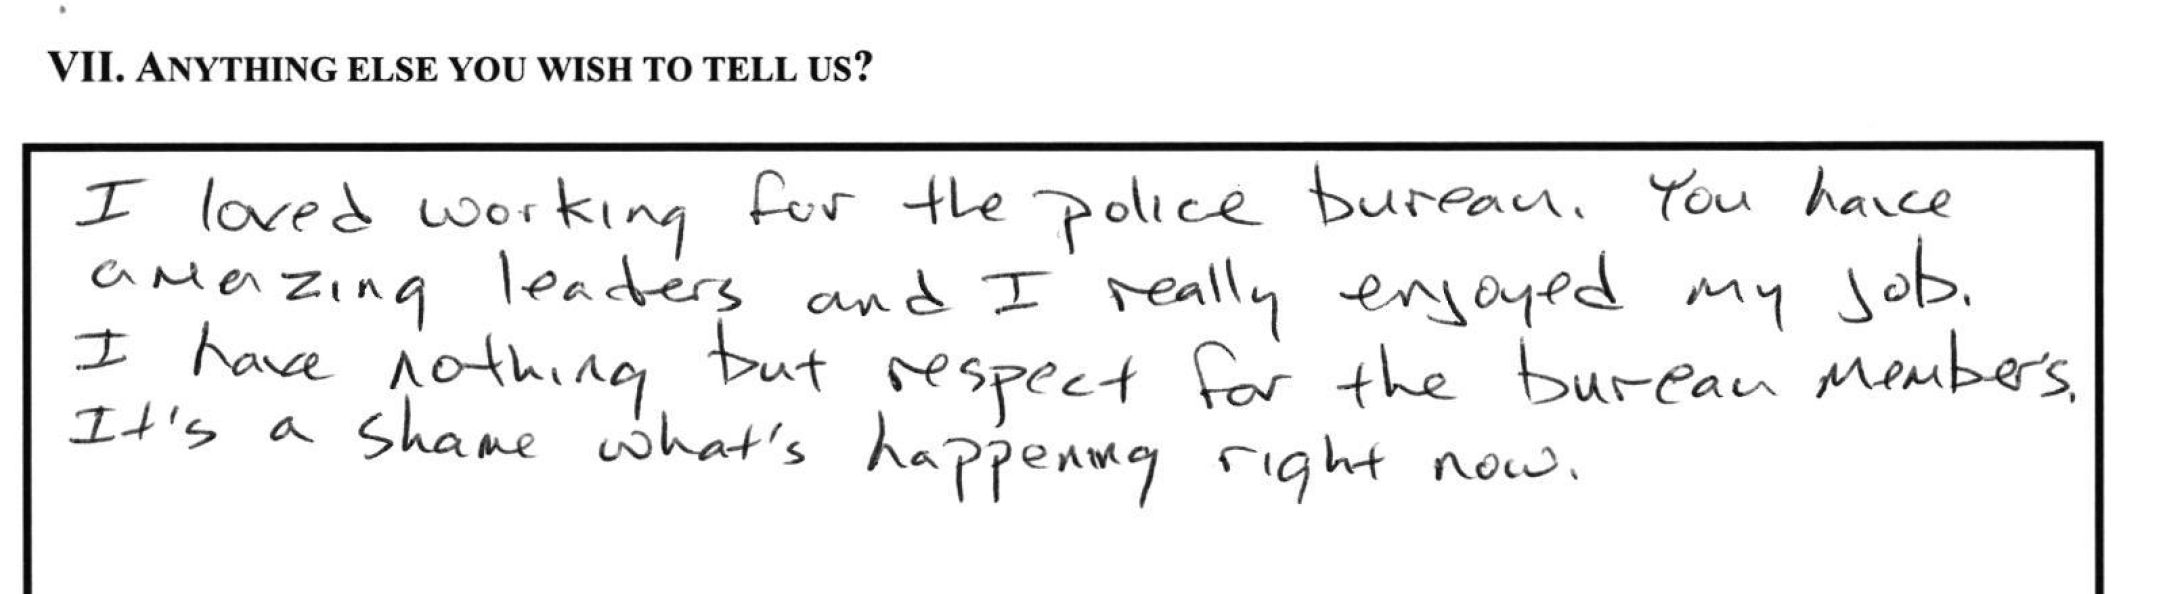 VII. ANYTHING ELSE YOU WISH TO TELL US?
I loved working for the police bureau. You have
amazing leaders and I really enjoyed my job.
I have nothing but respect for the bureau members.
It's a shame what's happening right now.